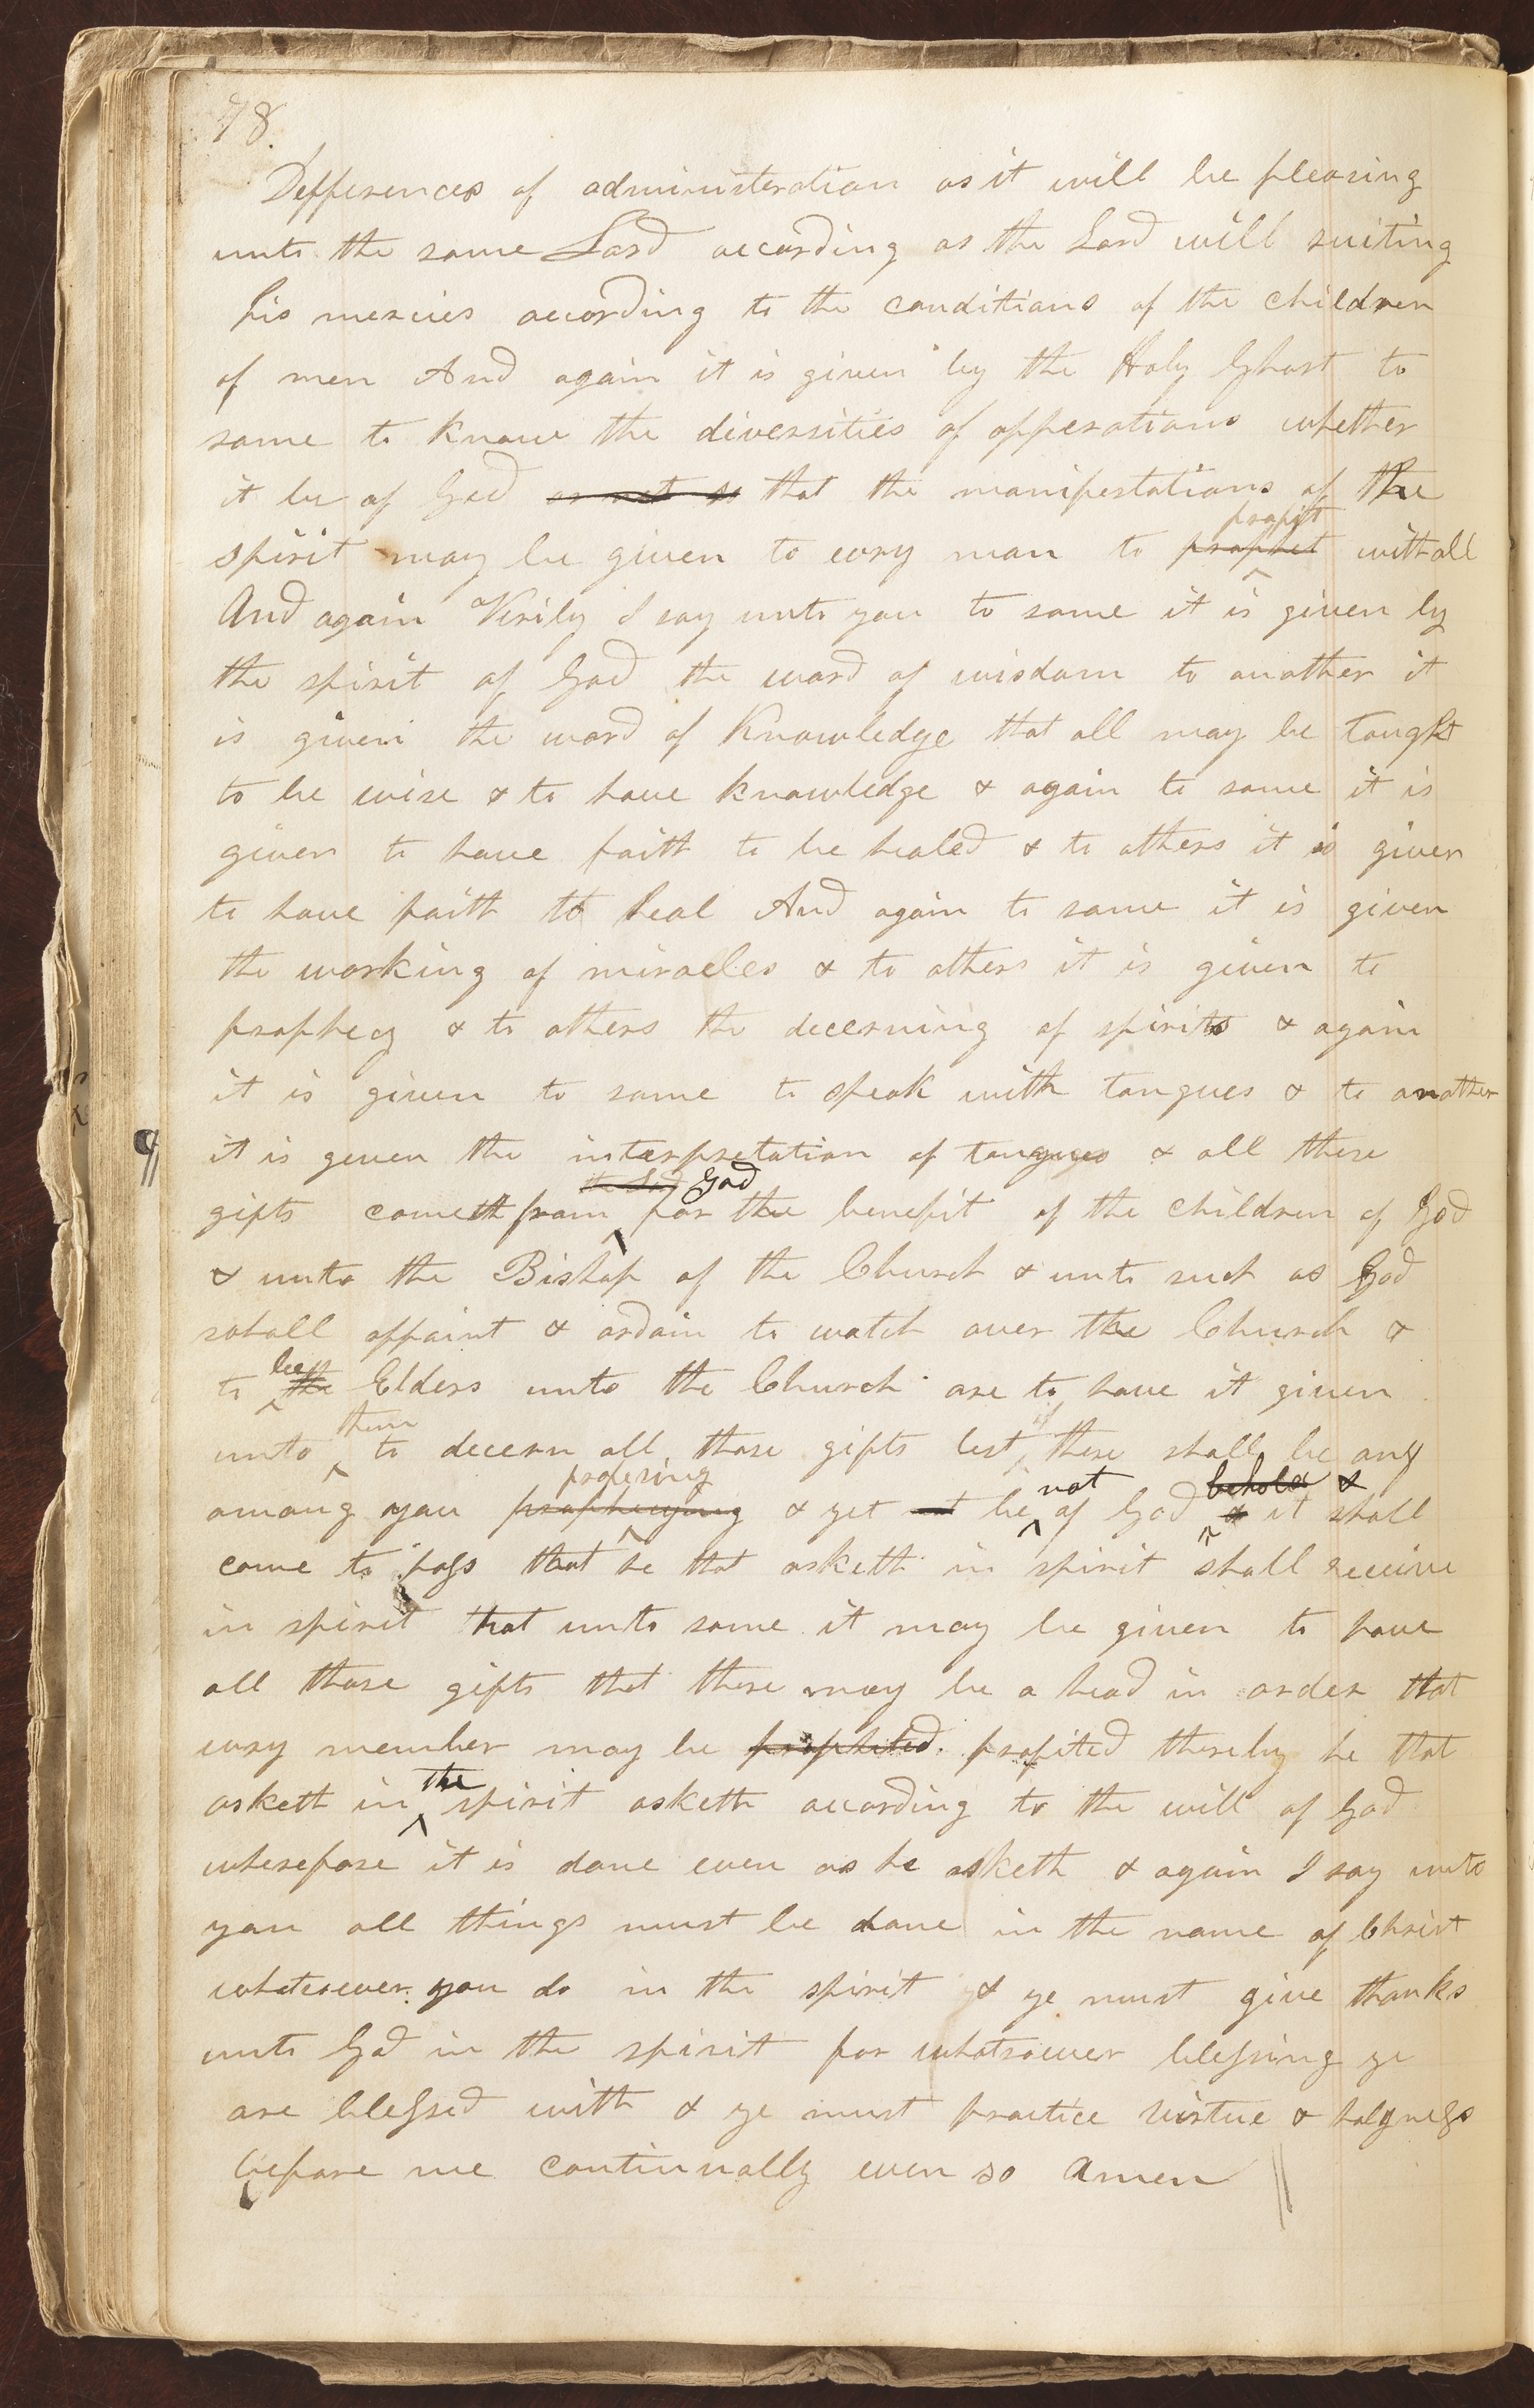 78.
Defferences of administeration as it will be pleasing
unto the same Lord according as the Lord will suiting
his mercies according to the conditions of the children
of men And again it is given by the Holy Ghost to
some to know the diversities of opperations whether
it be of God or not so that the manifestations of the
profit
spirit may be given to evry man to prophet withall
And again Verily I say unto you to some it is given by
the spirit of God the word of wisdom to another it
is given the word of Knowledge that all may be taught
to be wise & to have knowledge & again to some it is
given to have faith to be healed & to others it is given
to have faith to heal And again to some it is given
the working of miracles & to others it is given to
prophecy & to others the decerning of spirits & again
it is given to some to speak with tongues & to another
¶ it is geven the interpretation of tongues & all these
the Lord God
gifts cometh from ^ for the benefit of the children of God
& unto the Bishop of the Church & unto such as God
shall appoint & ordain to watch over the Church &
be
to ^ the Elders unto the Church are to have it given
them if
unto ^ to decern all those gifts lest ^ there shall be any
profesing not behold &
among you prophesying ^ & yet not be ^ of God ^ & it shall
come to pass that he that asketh in spirit shall receive
in spirit that unto some it may be given to have
all those gifts that there may be a head in order that
evry member may be prophited profited thereby he that
the
asketh in ^ spirit asketh according to the will of God
wherefore it is done even as he asketh & again I say unto
you all things must be done in the name of Christ
whatsoever you do in the spirit & ye must give thanks
unto God in the spirit for whatsoever blessing ye
are blessed with & ye must practice virtue & holyness
before me continually even so Amen